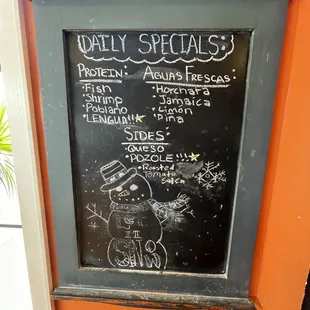 DAILY SPECIALS:
PROTEIN:
• Fish
• Shrimp
• Poblano
• LENGUA!!
AGUAS FRESCAS:
• Horchara
• Jamaica
• Limón
• Piña
SIDES:
• Queso
• POZOLE!!!
• Roasted
Tomato
Salsa
LET
IT
SNOW